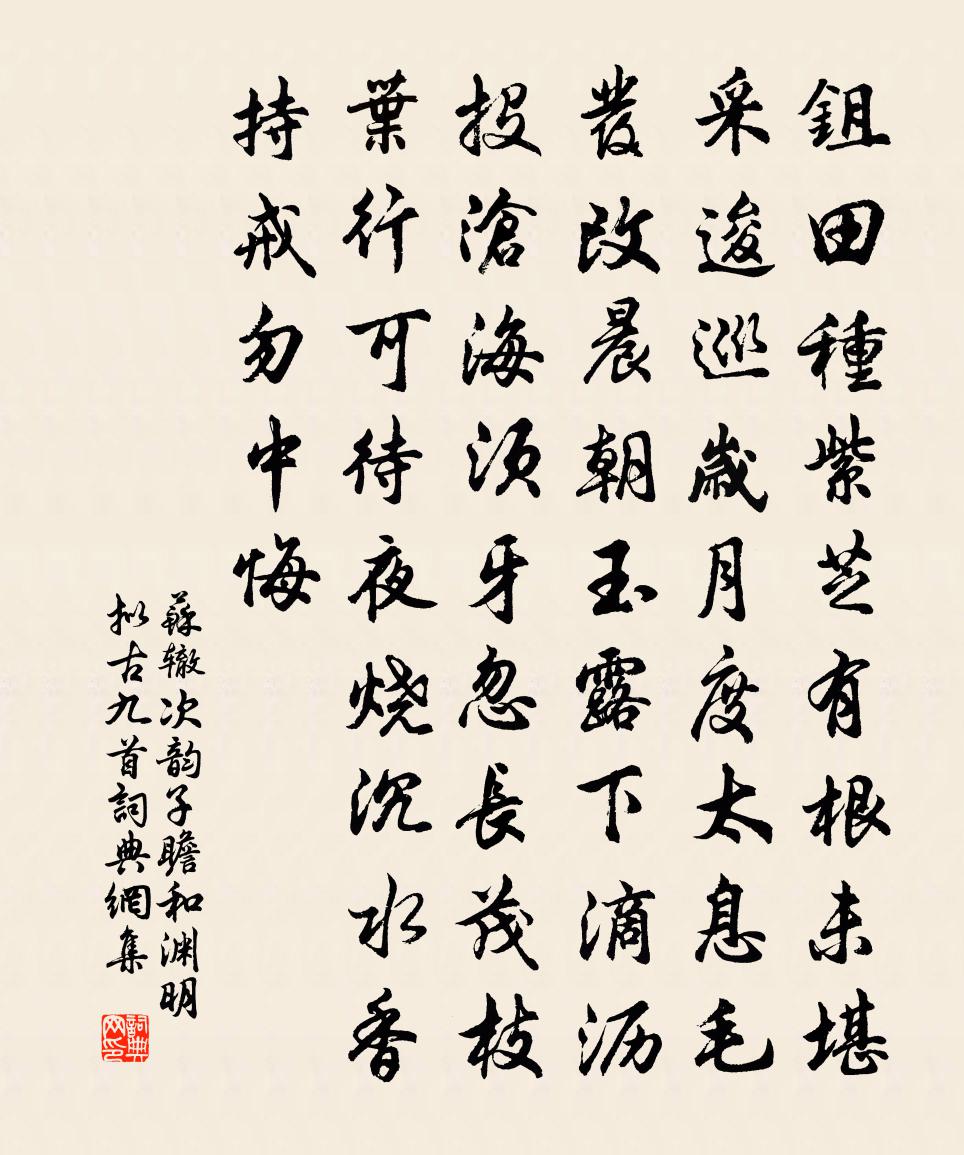 鉏田種紫芝有根未堪
采逡巡歲月度太息毛
發改晨朝玉露下滴沥
投滄海須牙忽長茂枝
葉行可待夜烧沉水香
持戒勿中悔
蘇辙次韵子瞻和渊明
拟古九首詞典網集
詞典网印